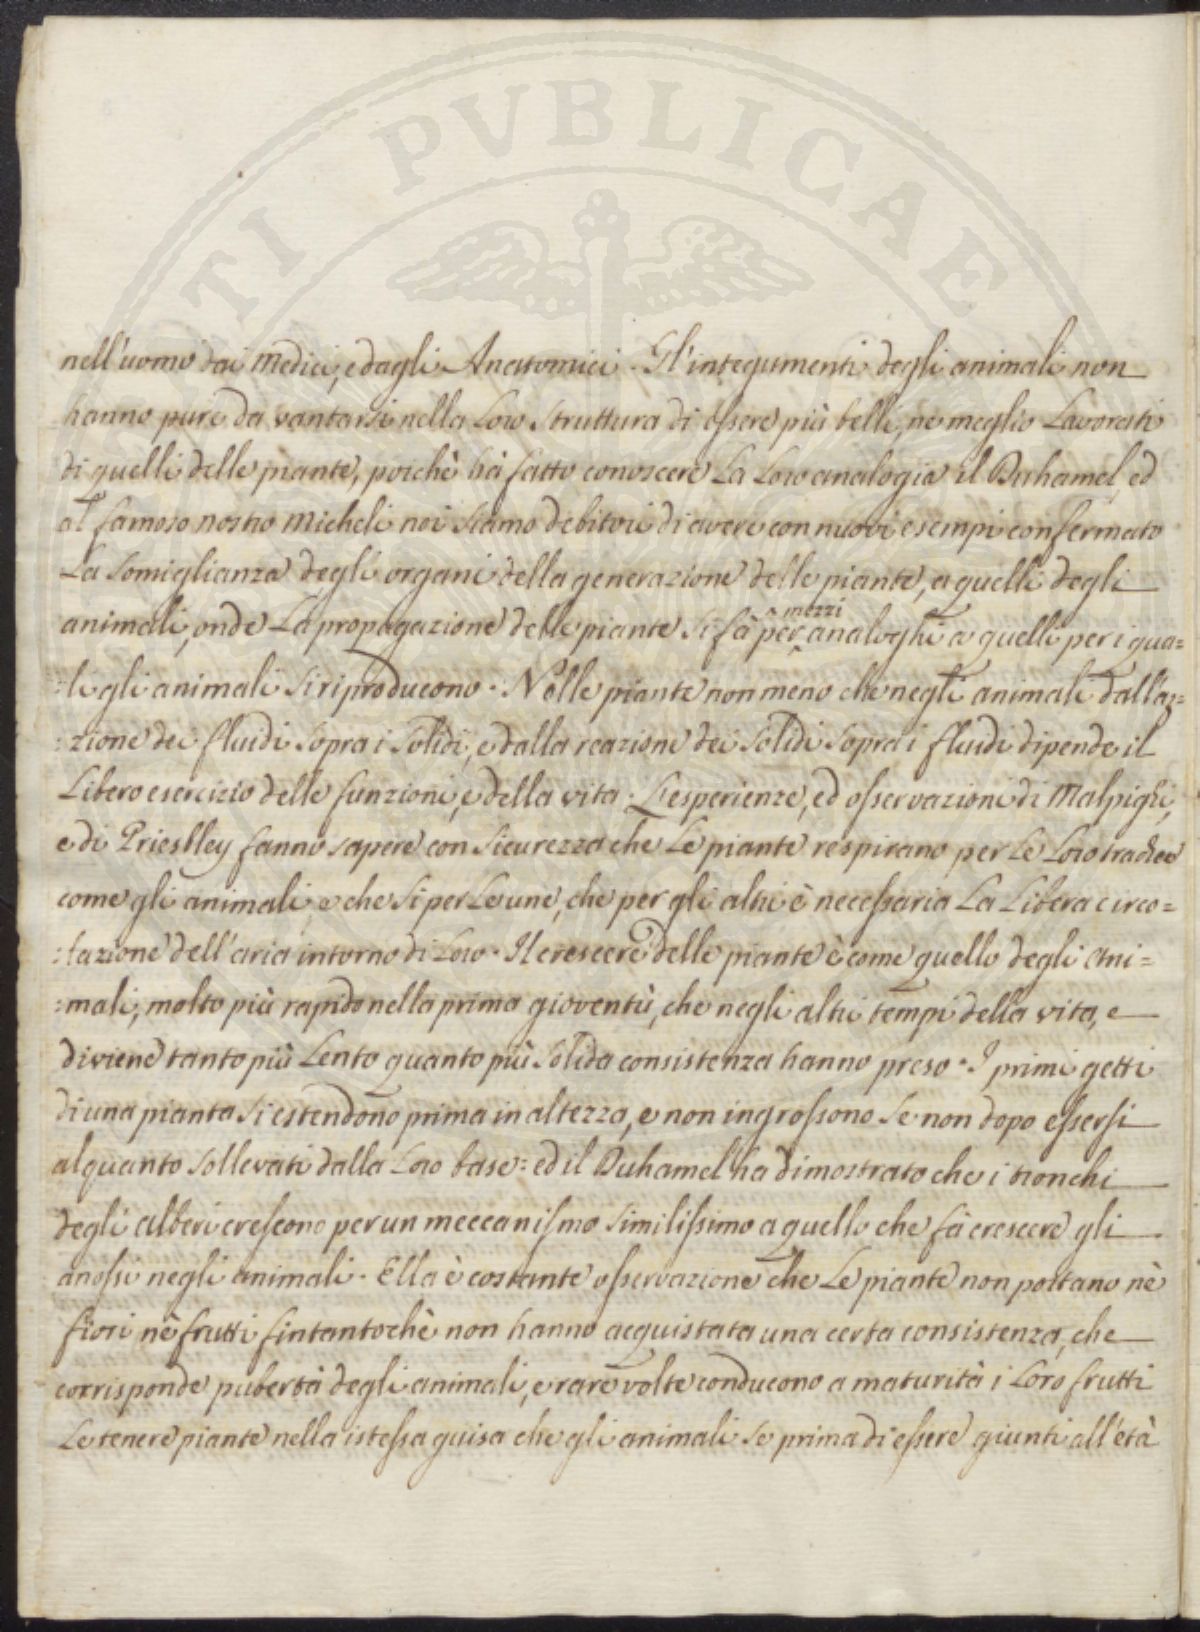 TI PVBLICAE
nell'uomo dai Medici, e dagli Anatomici. Gl'integumenti degli animali non
hanno pure da vantarsi nella loro struttura di essere più belli, ne meglio lavorati
di quelli delle piante, poichè hà fatto conoscere la loro analogia il Duhamel, ed
al famoso nostro Micheli noi siamo debitori di avere con nuovi esempi confermato
la somiglianza degli organi della generazione delle piante, a quelli degli
animali, onde la propagazione delle piante si fà per mezzi analoghi a quelli per i qua=
:li gli animali si riproducono. Nelle piante non meno che negli animali dall'az=
:zione dei fluidi sopra i solidi, e dalla reazione dei solidi sopra i fluidi dipende il
libero esercizio delle funzioni, e della vita. L'esperienze, ed osservazioni di Malpighi,
e di Priestley fanno sapere con sicurezza che le piante respirano per le loro trachee
come gli animali, e che si per le une, che per gli altri è necessaria la libera circo=
:lazione dell'aria intorno di loro. Il crescere delle piante è come quello degli ani=
:mali, molto più rapido nella prima gioventù, che negli altri tempi della vita, e
diviene tanto più lento quanto più solida consistenza hanno preso. I primi getti
di una pianta si estendono prima in altezza, e non ingrossono se non dopo essersi
alquanto sollevati dalla loro base: ed il Duhamel ha dimostrato che i tronchi
degli alberi crescono per un meccanismo similissimo a quello che fà crescere gli
anossi negli animali. Ella è costante osservazione che le piante non portano nè
fiori nè frutti fintantochè non hanno acquistata una certa consistenza, che
corrisponde pubertà degli animali, e rare volte conducono a maturità i loro frutti
le tenere piante nella istessa guisa che gli animali se prima di essere giunti all'età